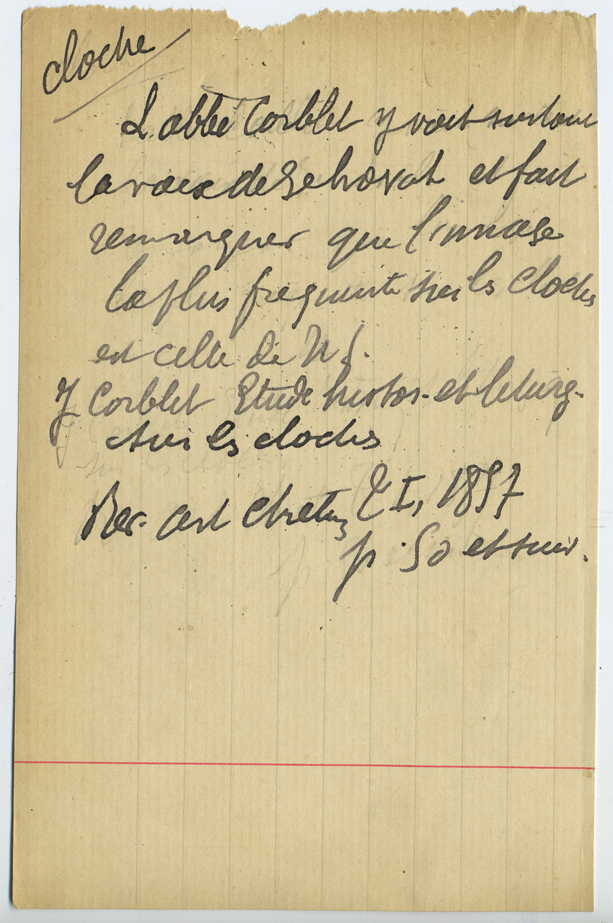 cloche
L'abbé Corblet y voit surtout
la voix de Jehovah et fait
remarquer que l'image
la plus frequente sur les cloches
est celle de N S.
J Corblet Etude histor. et liturg.
sur les cloches
Rev. art chretien T I, 1857
p. 50 et suiv.